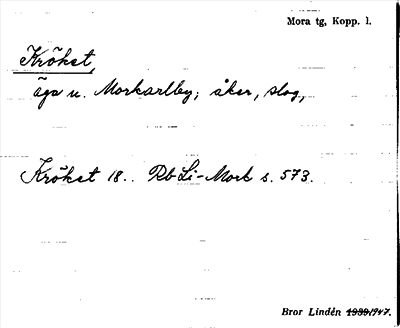 Mora tg, Kopp. l.
Krökst,
äga u. Morkarlby; åker, slog,
Krökst 18.. Rb Li-Mork s. 573.
Bror Lindén 1939/1947.